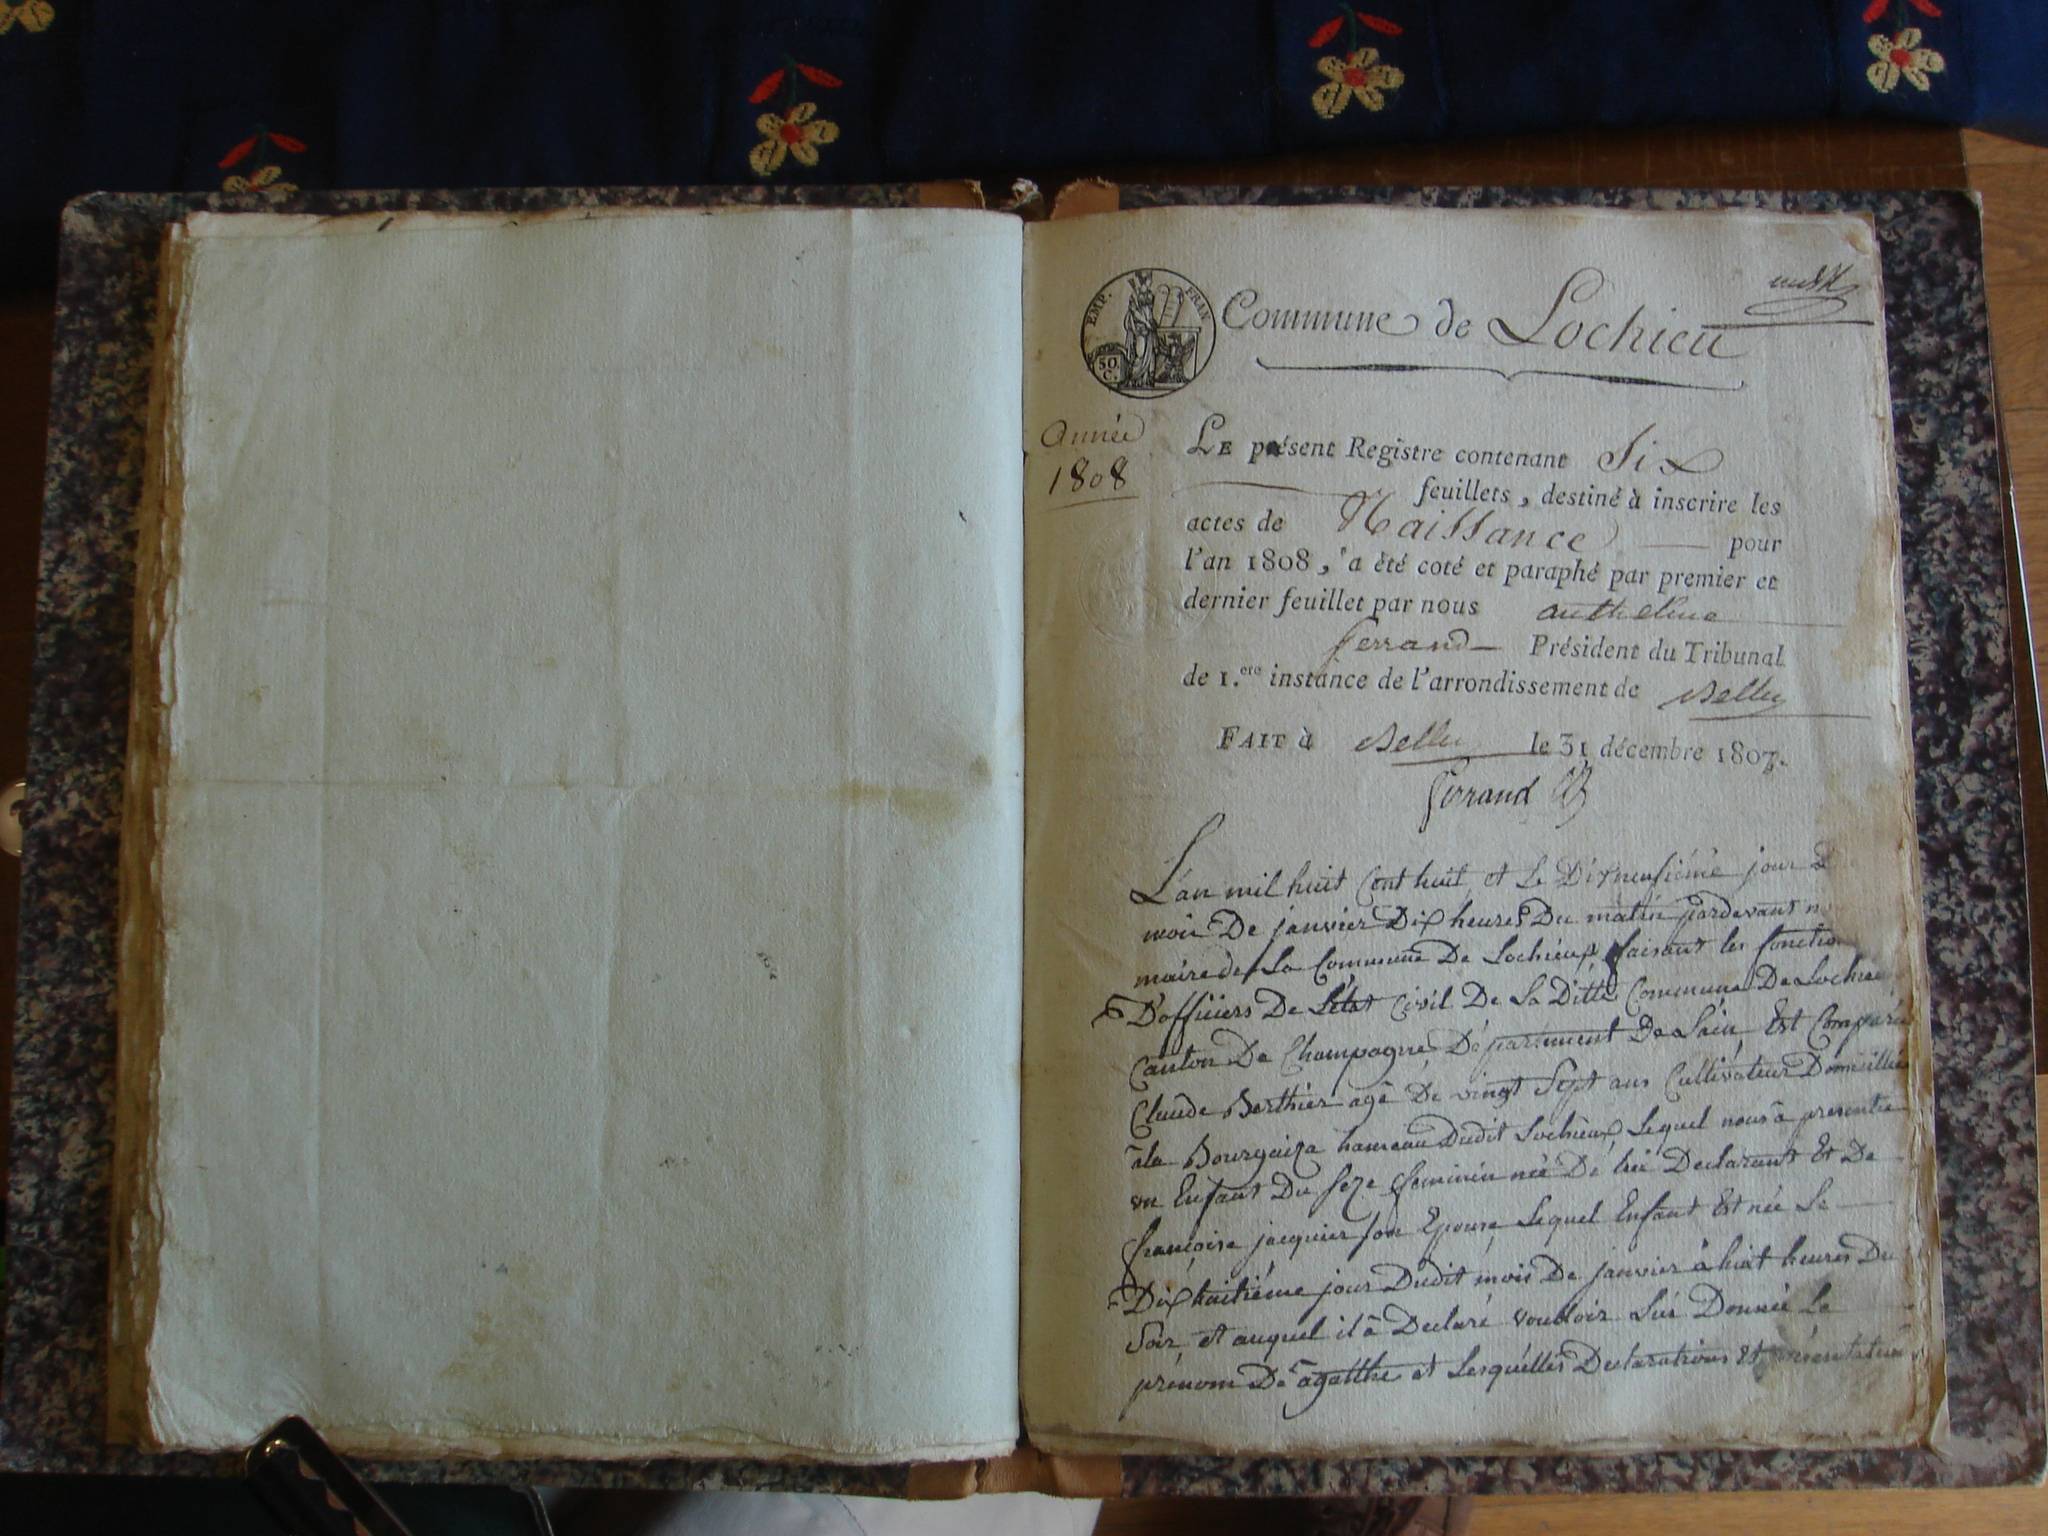 EMP. FRAN
50 C.
Commune de Lochieu
Année
1808
LE présent Registre contenant Six
feuillets, destiné à inscrire les
actes de Naissance pour
l'an 1808, a été coté et paraphé par premier et
dernier feuillet par nous anthelme
ferrand Président du Tribunal
de 1.ere instance de l'arrondissement de Belley
FAIT à Belley le 31 décembre 1807.
ferrand
L'an mil huit Cent huit et Le Dixneufiéme jour
mois De janvier Dix heures Du matin pardevant
maire de La Commune De Lochieux faisant les fonction
D'officiers De L'état Civil De La Ditte Commune De Lochieu
Canton De Champagne Département De Lain, Est Comparu
Claude Berthier agé De vingt Sept ans Cultivateur Domicillié
àla Bourgaiza hameau Dudit Lochieux, Lequel nous à presentée
un Enfant Du sexe feminin née De lui Declarant Et De
françoise jacquier son Epouse, Lequel Enfant Est née Le
Dixhuitiéme jour Dudit mois De janvier à huit heures Du
Soir, et auquel il à Declaré vouloir Lui Donnée Le
prénom De agatthe et Lesquelles Declarations Et présentation